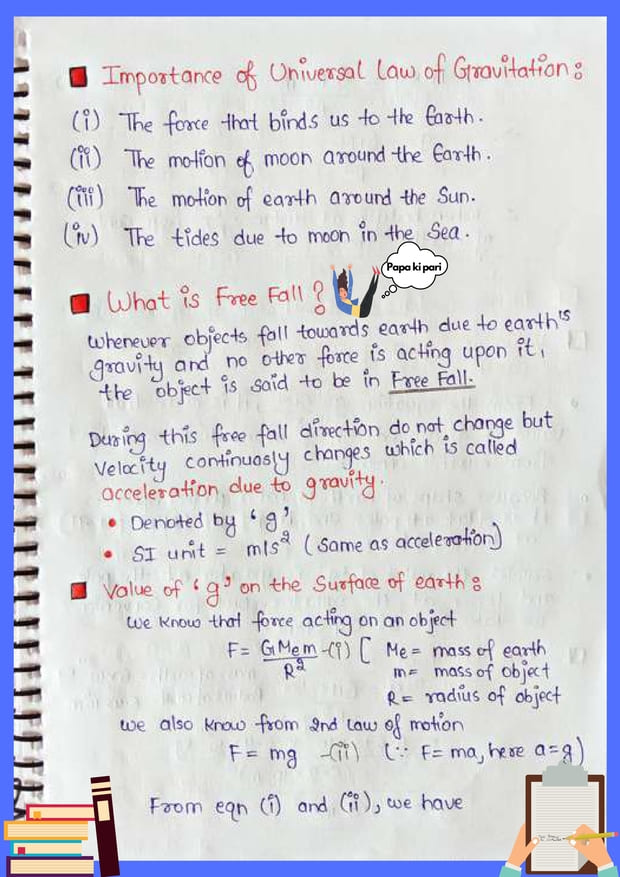 Importance of Universal Law of Gravitation:
(i) The force that binds us to the Earth.
(ii) The motion of moon around the Earth.
(iii) The motion of earth around the Sun.
(iv) The tides due to moon in the Sea.
Papa ki pari
What is Free Fall?
Whenever objects fall towards earth due to earth's
gravity and no other force is acting upon it,
the object is said to be in Free Fall.
During this free fall direction do not change but
Velocity continuosly changes which is called
acceleration due to gravity.
• Denoted by 'g'
• SI unit = m/s² (Same as acceleration)
Value of 'g' on the Surface of earth:
We know that force acting on an object
F = GMem/R² -(i) [ Me = mass of earth
m = mass of object
R = radius of object
We also know from 2nd law of motion
F = mg -(ii) (∵ F = ma, here a = g)
From eqn (i) and (ii), we have